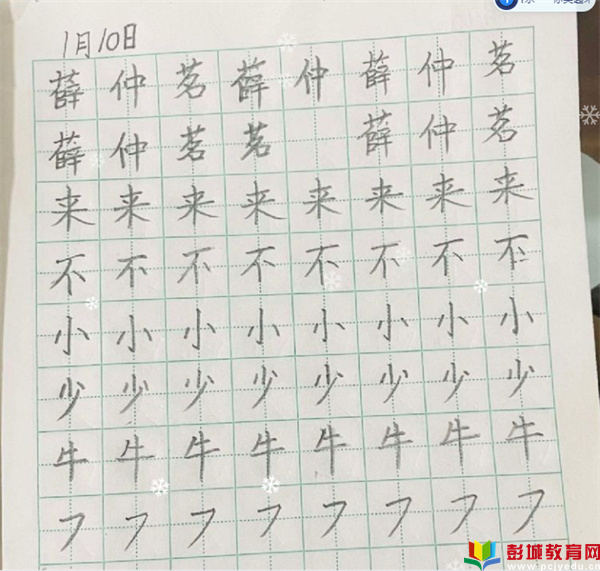 1月10日
薛仲茗薛仲薛仲茗
薛仲茗茗 薛仲茗
来来来来来来来来
不不不不不不不不
小小小小小小小小
少少少少少少少少
牛牛牛牛牛牛牛牛
彭城教育网
www.pcjyedu.cn